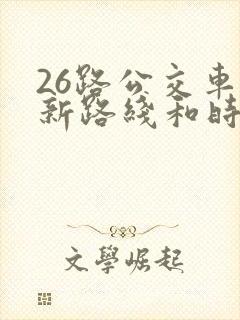 26路公交車
新路綫和時
文學崛起